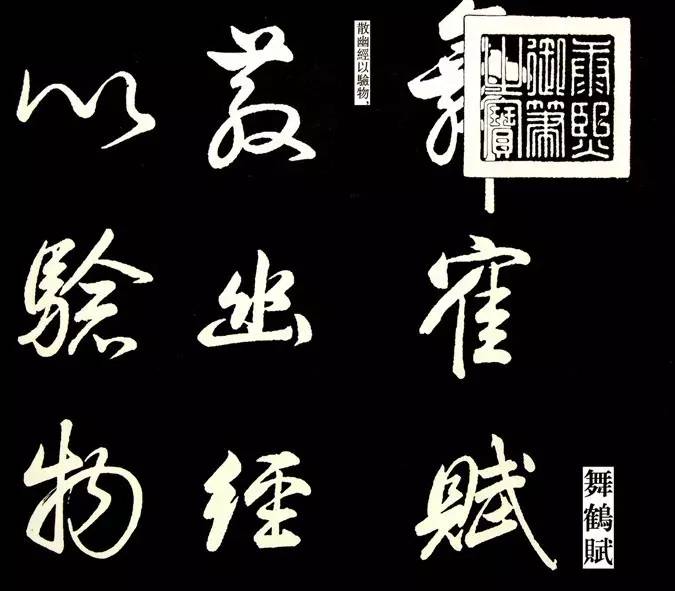 康熙御筆之寶
舞寉賦
舞鶴賦
散幽經以驗物、
散幽經
以騐物